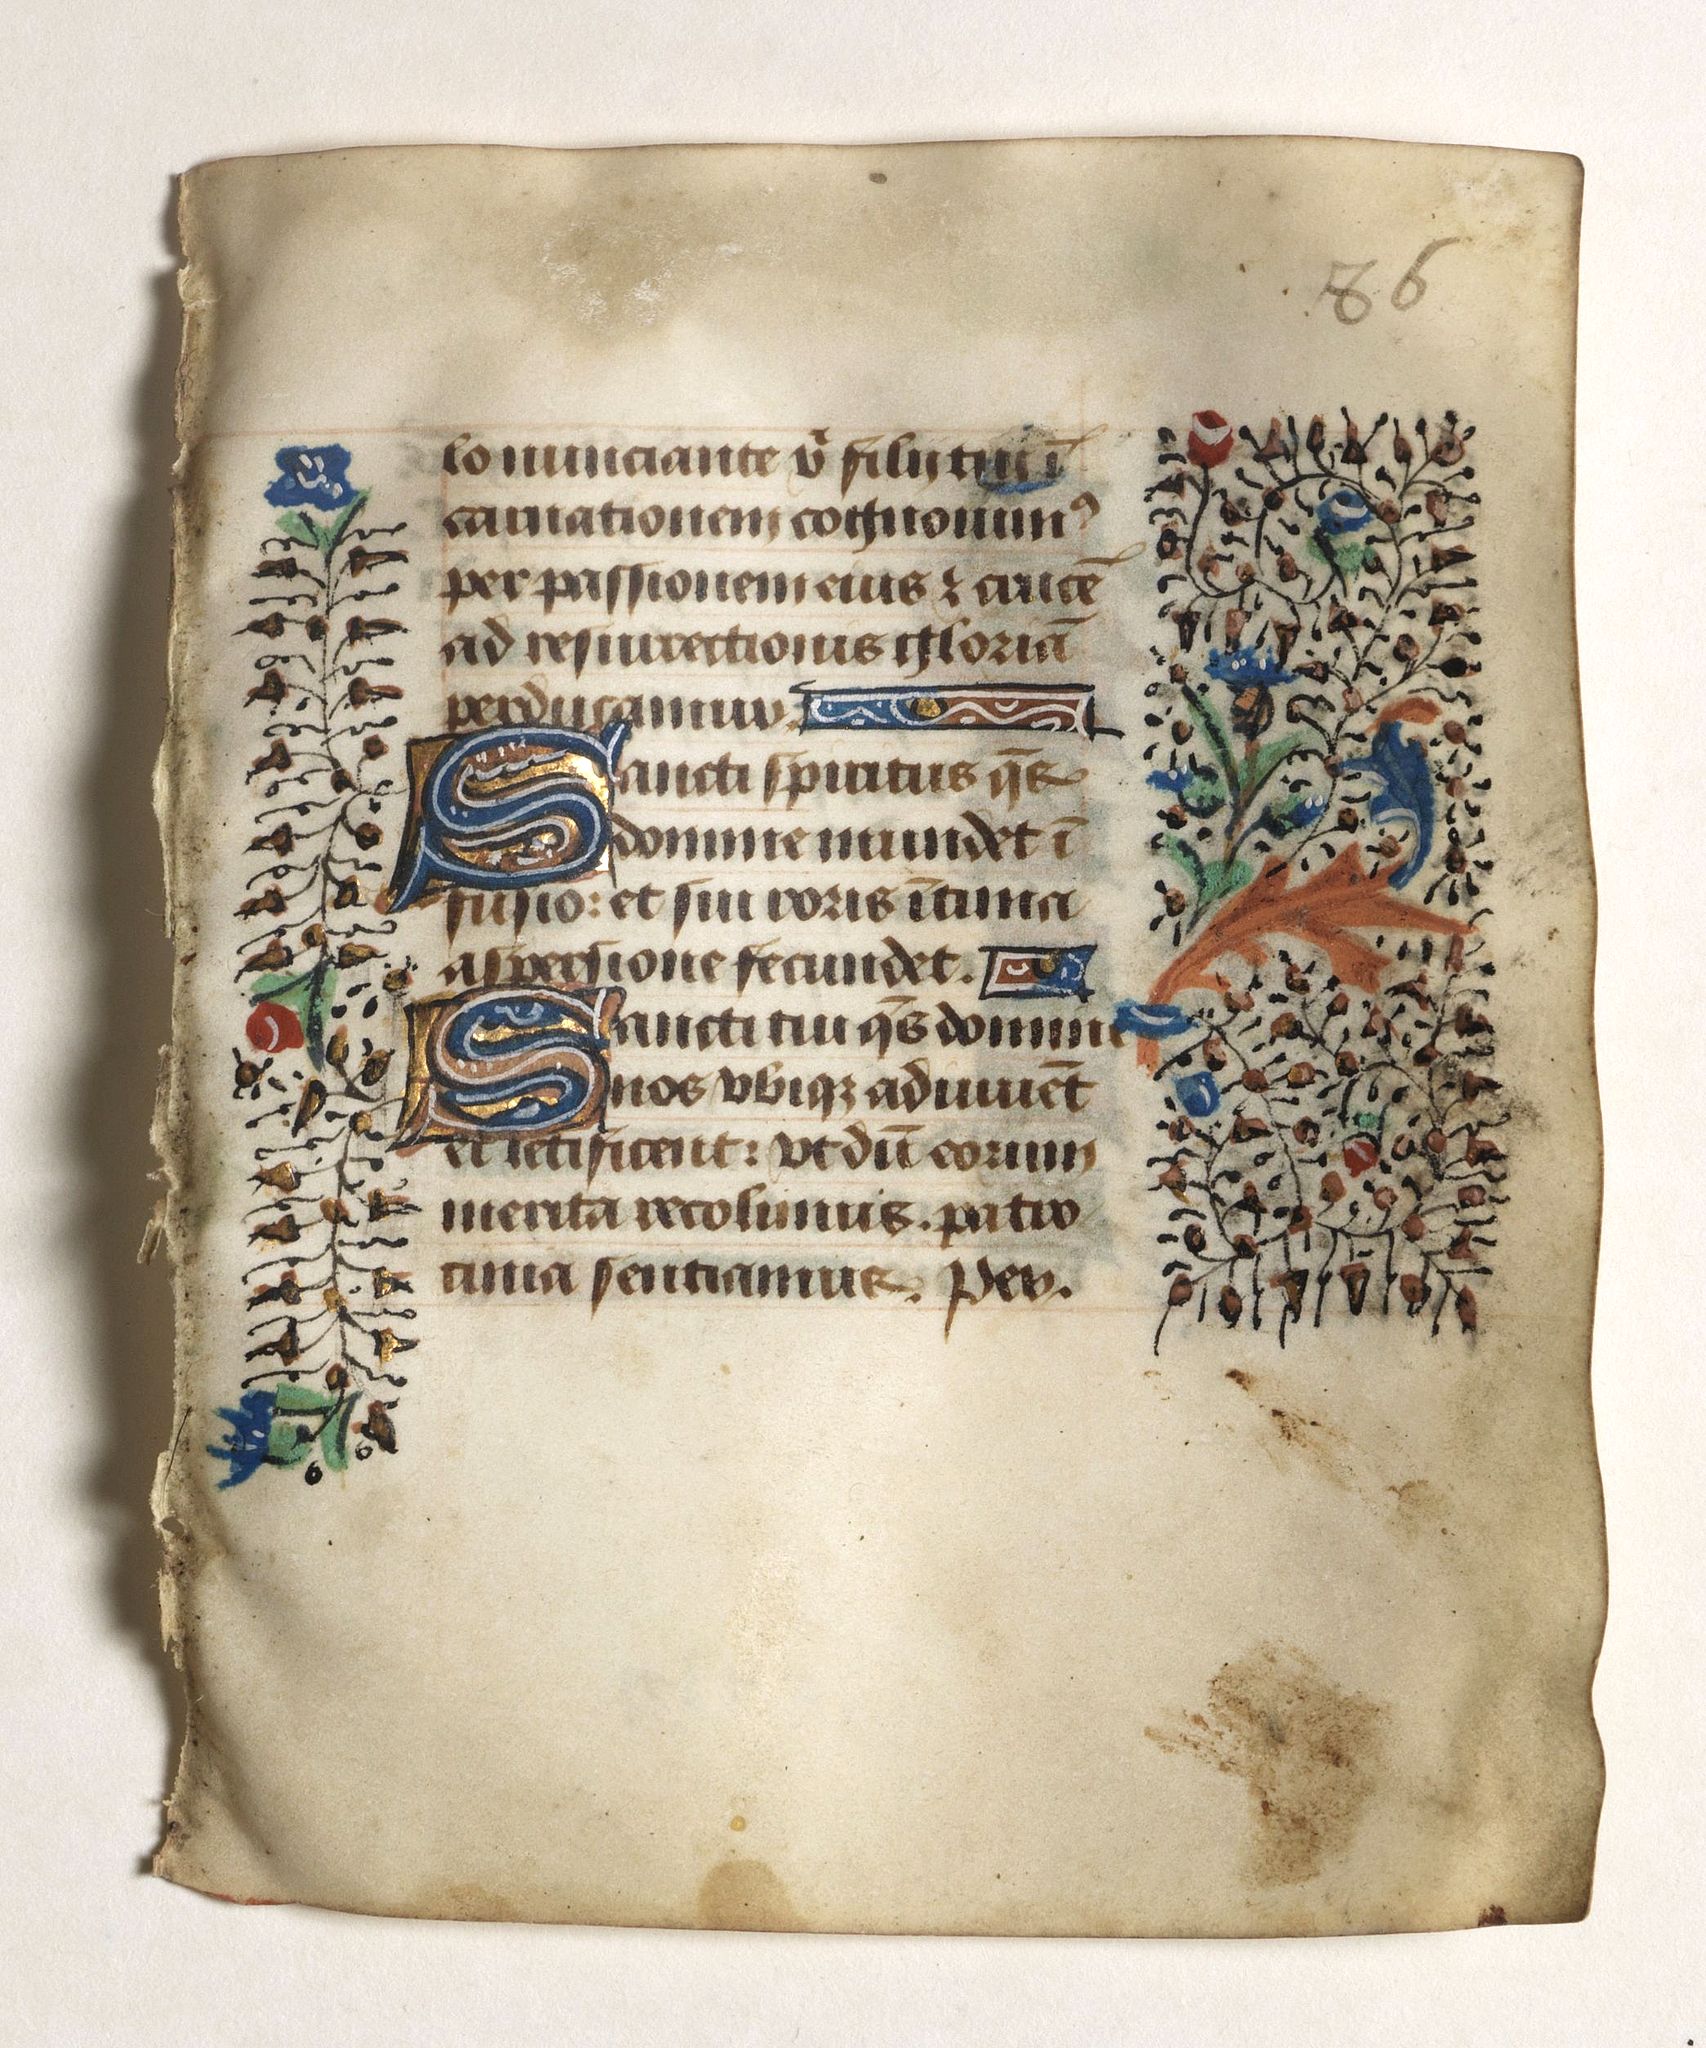 86
lo nunciante xp̄i filii tui ī
carnationem cognouimꝰ
per passionem eius ⁊ crucē
ad resurrectionis gloriā
perducamur
Sancti spiritus q̄s
domine mundet ī
fusio: et sui roris ītima
aspersione fecundet.
Sancti tui q̄s domine
nos vbiqꝫ adiuuēt
et letificent: vt dū eorum
merita recolimus. patro
cinia sentiamus. Per.